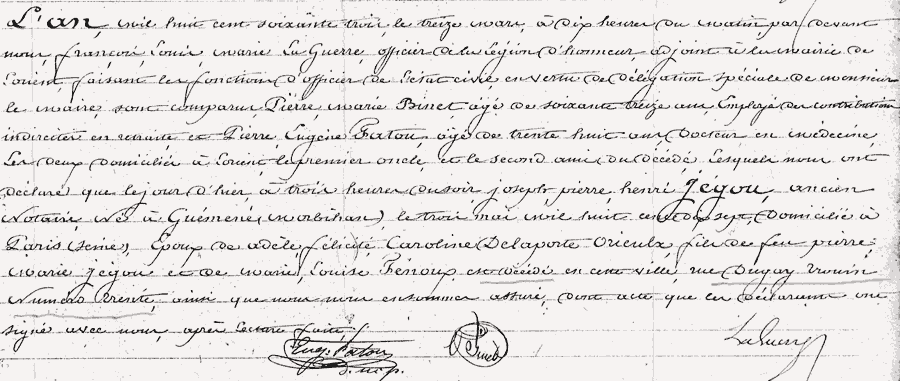 L'an mil huit cent soixante trois, le treize mars, à dix heures du matin par devant
nous, françois Louis marie La Guerre, officier de la Légion d'honneur, adjoint à la mairie de
Lorient, faisant les fonctions d'officier de l'état civil en vertu de délégation spéciale de monsieur
le maire, sont comparus Pierre marie Binet âgé de soixante treize ans, Employé des contributions
indirectes en retraite et Pierre Eugène Fatou, âgé de trente huit ans Docteur en médecine
Les deux domiciliés à Lorient le premier oncle et le second ami du décédé, Lesquels nous ont
déclaré que le jour d'hier à trois heures du soir, joseph pierre henri Jégou, ancien
Notaire, Né à Guémené (morbihan), le trois mai mil huit cent dix sept, Domicilié à
Paris (Seine), Epoux de adèle félicité Caroline Delaporte fils de feu pierre
marie jegou et de marie Louise Fenoux est décédé en cette ville, rue Duguay Trouin
Numéro trente, ainsi que nous nous en sommes assuré, dont acte que les déclarants ont
signé avec nous, après lecture faite /.
Eug. Fatou Binet LaGuerre
d.m.p.